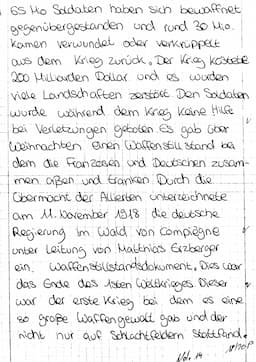 65 Mio Soldaten haben sich bewaffnet
gegenübergestanden und rund 30 Mio.
kamen verwundet oder verkrüppelt
aus dem Krieg zurück. Der Krieg kostete
200 Milliarden Dollar und es wurden
viele Landschaften zerstört. Den Soldaten
wurde während dem Krieg keine Hilfe
bei Verletzungen geboten Es gab über
Weihnachten einen Waffenstillstand bei
dem die Franzosen und Deutschen zusam-
men aßen und tranken Durch die
Übermacht der Alliierten unterzeichnete
am 11. November 1918 die deutsche
Regierung im Wald von Compiègne
unter Leitung von Matthias Erzberger
ein Waffenstillstandsdokument. Dies war
das Ende des 1sten Weltkrieges Dieser
war der erste Krieg bei dem es eine
so große Waffengewalt gab und der
nicht nur auf Schlachtfeldern stattfand.